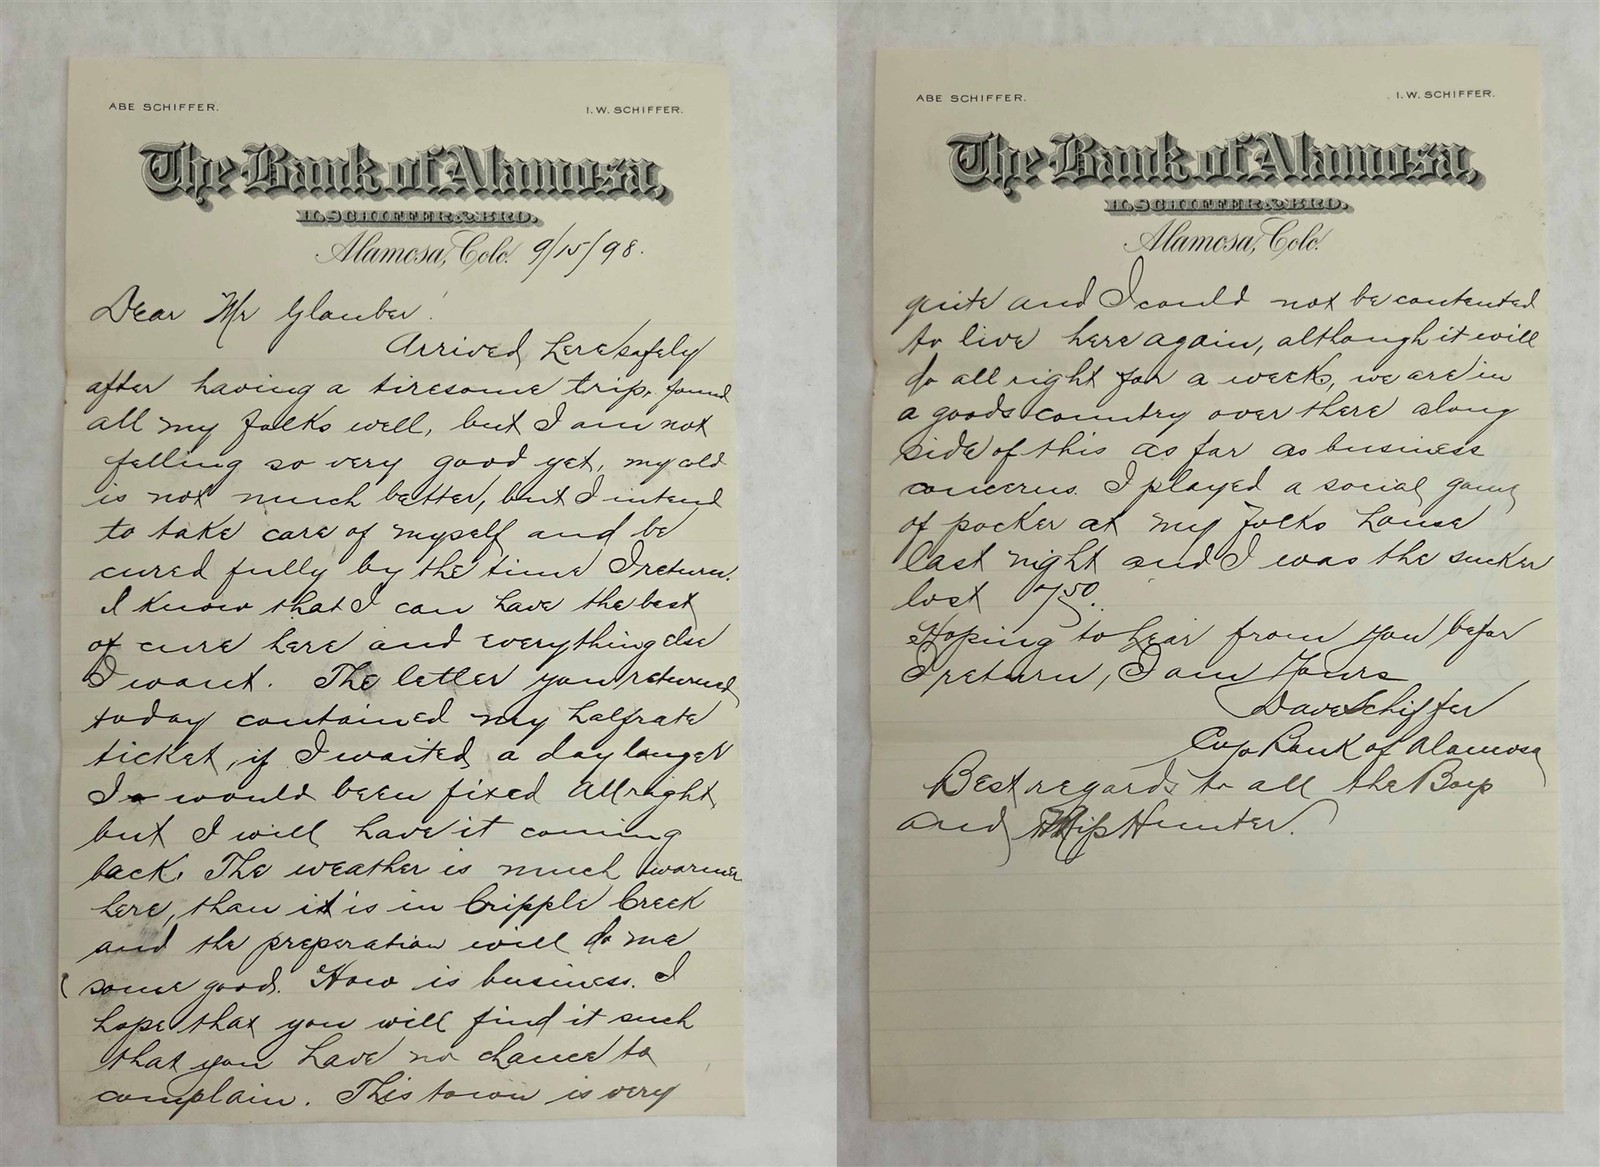 ABE SCHIFFER. I. W. SCHIFFER.
The Bank of Alamosa,
H. SCHIFFER & BRO.
Alamosa, Colo. 9/15/98.
Dear Mr Glauber!
Arrived here safely
after having a tiresome trip, found
all my folks well, but I am not
felling so very good yet, my cold
is not much better, but I intend
to take care of myself and be
cured fully by the time I return.
I know that I can have the best
of cure here and everything else
I want. The letter you returned
today contained my halfrate
ticket, if I waited a day longer
I would been fixed Allright,
but I will have it coming
back. The weather is much warmer
here, than it is in Cripple Creek
and the preperation will do me
some good. How is business. I
hope that you will find it such
that you have no chance to
complain. This town is very
ABE SCHIFFER. I. W. SCHIFFER.
The Bank of Alamosa,
H. SCHIFFER & BRO.
Alamosa, Colo.
quite and I could not be contented
to live here again, although it will
do all right for a week, we are in
a goods country over there along
side of this as far as business
concerns. I played a social game
of pocker at my folks house
last night and I was the sucker
lost 7.50.
Hoping to hear from you befor
I return, I am Yours
Dave Schiffer
C/o Bank of Alamosa
Best regards to all the Boys
and Miss Hunter.